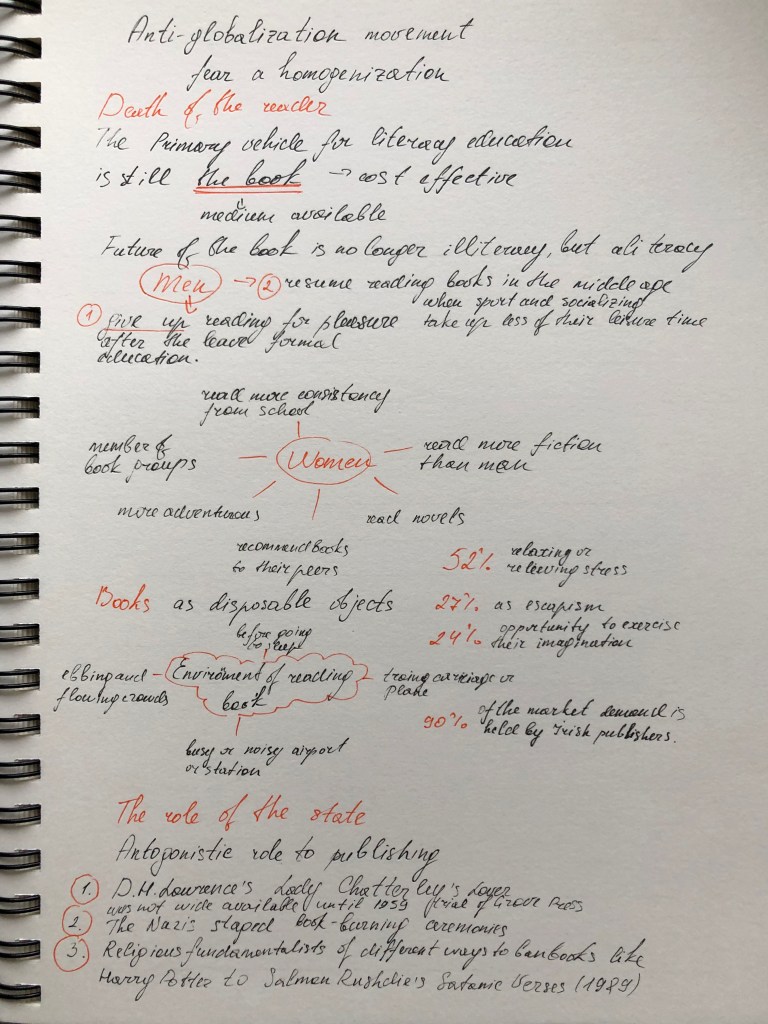 Anti-globalization movement
fear a homogenization
Death of the reader
The Primary vehicle for literacy education
is still the book → cost effective
medium available
Future of the book is no longer illiteracy, but aliteracy
Men → 2 resume reading books in the middle age
when sport and socializing
take up less of their leisure time
1 give up reading for pleasure
after the leave formal
education.
read more consistency
from school
member of
book groups
Women
read more fiction
than man
more adventurous
read novels
recommend books
to their peers
52% relaxing or
relieving stress
Books as disposable objects
27% as escapism
24% opportunity to exercise
their imagination
before going
to sleep
ebbing and
flowing crowds
Enviroment of reading
book
traing carriage or
plane
90% of the market demand is
held by Irish publishers.
busy or noisy airport
or station
The role of the state
Antogonistic role to publishing
1. D.H. Lowrence's Lady Chatterley's Lover
was not wide available until 1959 trial of Grove Press
2. The Nazis staped book-burning ceremonies
3. Religious fundamentalists of different ways to ban books like
Harry Potter to Salmon Rushdie's Satanic Verses (1989)